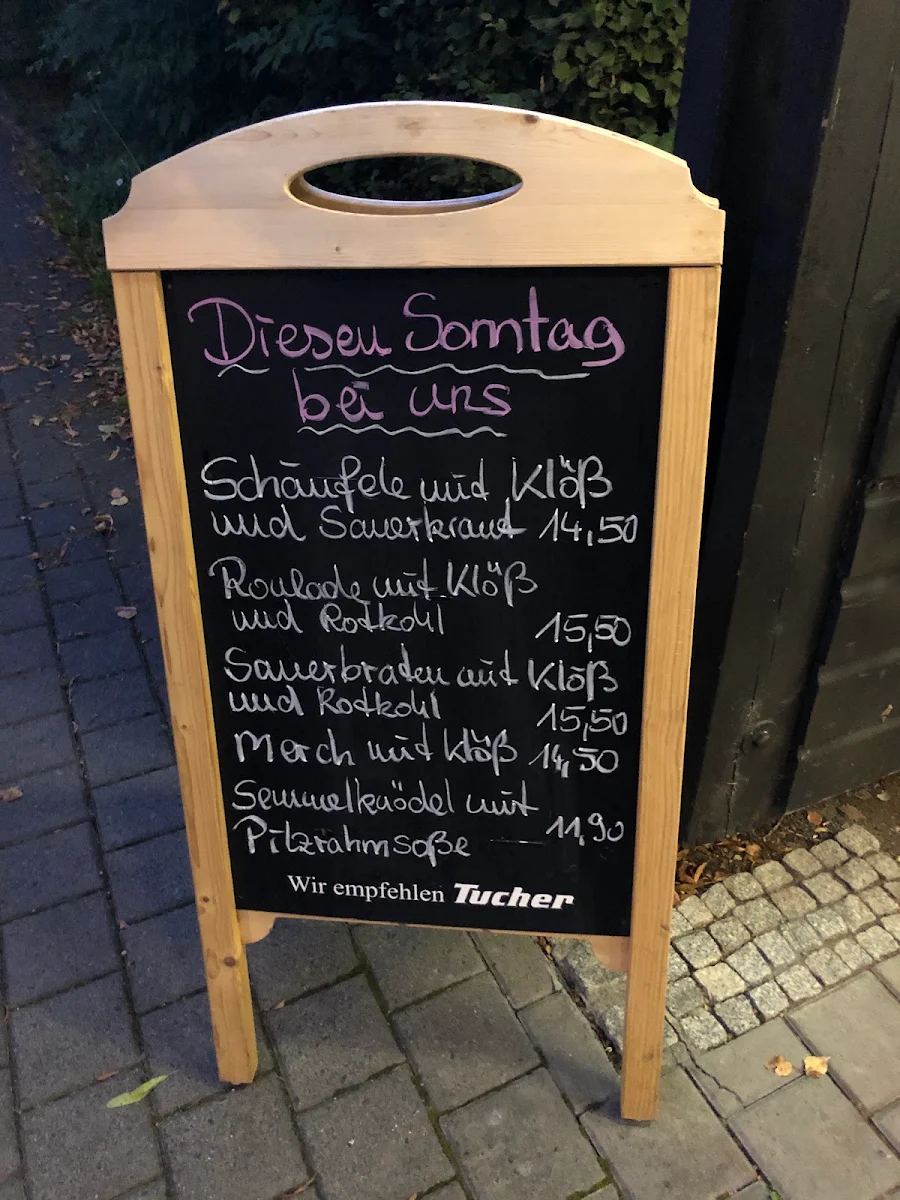 Diesen Sonntag
bei uns
Schäufele mit Klöß
und Sauerkraut 14,50
Roulade mit Klöß
und Rotkohl 15,50
Sauerbraten mit Klöß
und Rotkohl 15,50
Merch mit Klöß 14,50
Semmelknödel mit
Pilzrahmsoße 11,90
Wir empfehlen Tucher